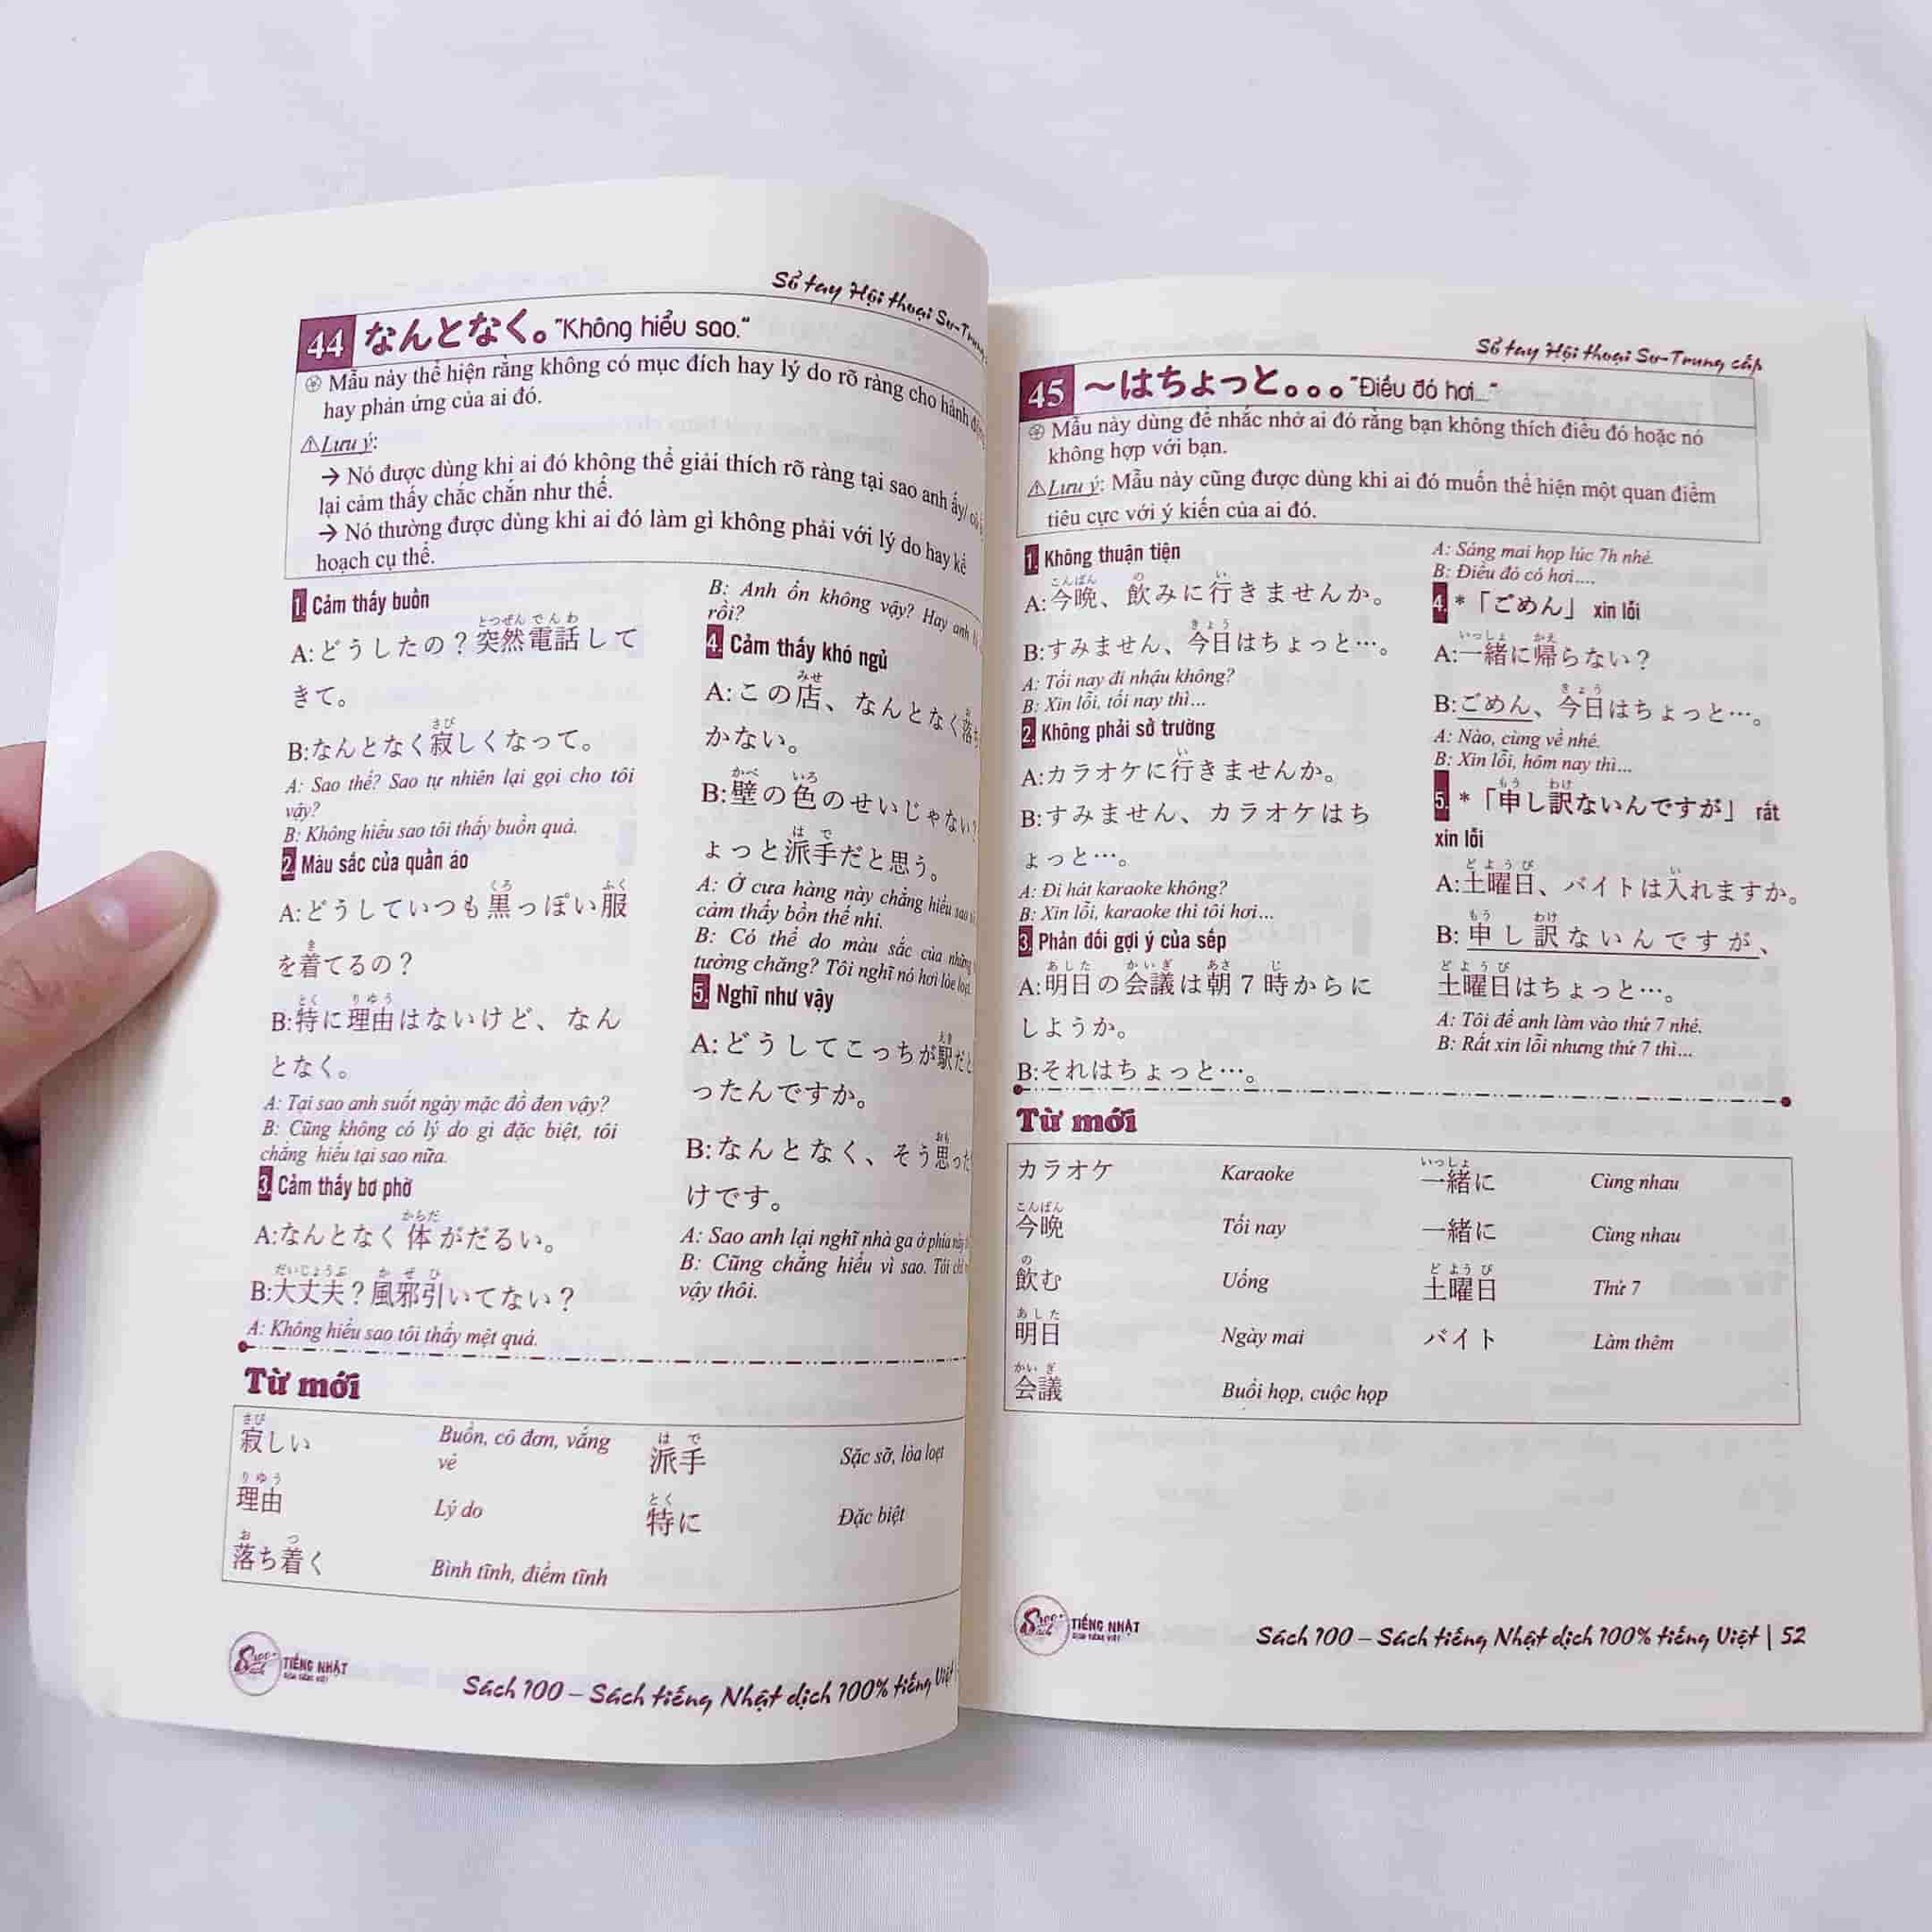 Sổ tay Hội thoại Sơ-Trung
44 なんとなく。"Không hiểu sao."
Mẫu này thể hiện rằng không có mục đích hay lý do rõ ràng cho hành động
hay phản ứng của ai đó.
⚠Lưu ý:
→ Nó được dùng khi ai đó không thể giải thích rõ ràng tại sao anh ấy/
lại cảm thấy chắc chắn như thế.
→ Nó thường được dùng khi ai đó làm gì không phải với lý do hay kế
hoạch cụ thể.
1. Cảm thấy buồn
とつぜん でんわ
A:どうしたの？突然電話して
きて。
さび
B:なんとなく寂しくなって。
A: Sao thế? Sao tự nhiên lại gọi cho tôi
vậy?
B: Không hiểu sao tôi thấy buồn quá.
2. Màu sắc của quần áo
くろ ふく
A:どうしていつも黒っぽい服
き
を着てるの？
とく りゆう
B:特に理由はないけど、なん
となく。
A: Tại sao anh suốt ngày mặc đồ đen vậy?
B: Cũng không có lý do gì đặc biệt, tôi
chẳng hiểu tại sao nữa.
3. Cảm thấy bơ phờ
からだ
A:なんとなく体がだるい。
だいじょうぶ かぜひ
B:大丈夫？風邪引いてない？
A: Không hiểu sao tôi thấy mệt quá.
B: Anh ổn không vậy? Hay anh
rồi?
4. Cảm thấy khó ngủ
みせ
A:この店、なんとなく落ち
かない。
かべ いろ
B:壁の色のせいじゃない？
はで
ょっと派手だと思う。
A: Ở cưa hàng này chẳng hiểu sao
cảm thấy bồn thế nhỉ.
B: Có thể do màu sắc của những
tường chăng? Tôi nghĩ nó hơi lòe loẹt
5. Nghĩ như vậy
えき
A:どうしてこっちが駅だと
ったんですか。
おも
B:なんとなく、そう思った
けです。
A: Sao anh lại nghĩ nhà ga ở phía này
B: Cũng chẳng hiểu vì sao. Tôi chỉ
vậy thôi.
Từ mới
さび
寂しい Buồn, cô đơn, vắng vẻ
はで
派手 Sặc sỡ, lòa loẹt
りゆう
理由 Lý do
とく
特に Đặc biệt
お つ
落ち着く Bình tĩnh, điềm tĩnh
TIẾNG NHẬT
Sách 100 – Sách tiếng Nhật dịch 100% tiếng Việt
Sổ tay Hội thoại Sơ-Trung cấp
45 ～はちょっと。。。"Điều đó hơi..."
Mẫu này dùng để nhắc nhở ai đó rằng bạn không thích điều đó hoặc nó
không hợp với bạn.
⚠Lưu ý: Mẫu này cũng được dùng khi ai đó muốn thể hiện một quan điểm
tiêu cực với ý kiến của ai đó.
1. Không thuận tiện
こんばん の い
A:今晩、飲みに行きませんか。
きょう
B:すみません、今日はちょっと…。
A: Tối nay đi nhậu không?
B: Xin lỗi, tối nay thì...
2. Không phải sở trường
い
A:カラオケに行きませんか。
B:すみません、カラオケはち
ょっと…。
A: Đi hát karaoke không?
B: Xin lỗi, karaoke thì tôi hơi...
3. Phản đối gợi ý của sếp
あした かいぎ あさ じ
A:明日の会議は朝７時からに
しようか。
B:それはちょっと…。
A: Sáng mai họp lúc 7h nhé.
B: Điều đó có hơi....
4. *「ごめん」 xin lỗi
いっしょ かえ
A:一緒に帰らない？
きょう
B:ごめん、今日はちょっと…。
A: Nào, cùng về nhé.
B: Xin lỗi, hôm nay thì...
もう わけ
5. *「申し訳ないんですが」 rất
xin lỗi
どようび い
A:土曜日、バイトは入れますか。
もう わけ
B:申し訳ないんですが、
どようび
土曜日はちょっと…。
A: Tôi để anh làm vào thứ 7 nhé.
B: Rất xin lỗi nhưng thứ 7 thì...
Từ mới
いっしょ
カラオケ Karaoke 一緒に Cùng nhau
こんばん
今晩 Tối nay 一緒に Cùng nhau
の どようび
飲む Uống 土曜日 Thứ 7
あした
明日 Ngày mai バイト Làm thêm
かいぎ
会議 Buổi họp, cuộc họp
TIẾNG NHẬT
Sách 100 – Sách tiếng Nhật dịch 100% tiếng Việt | 52